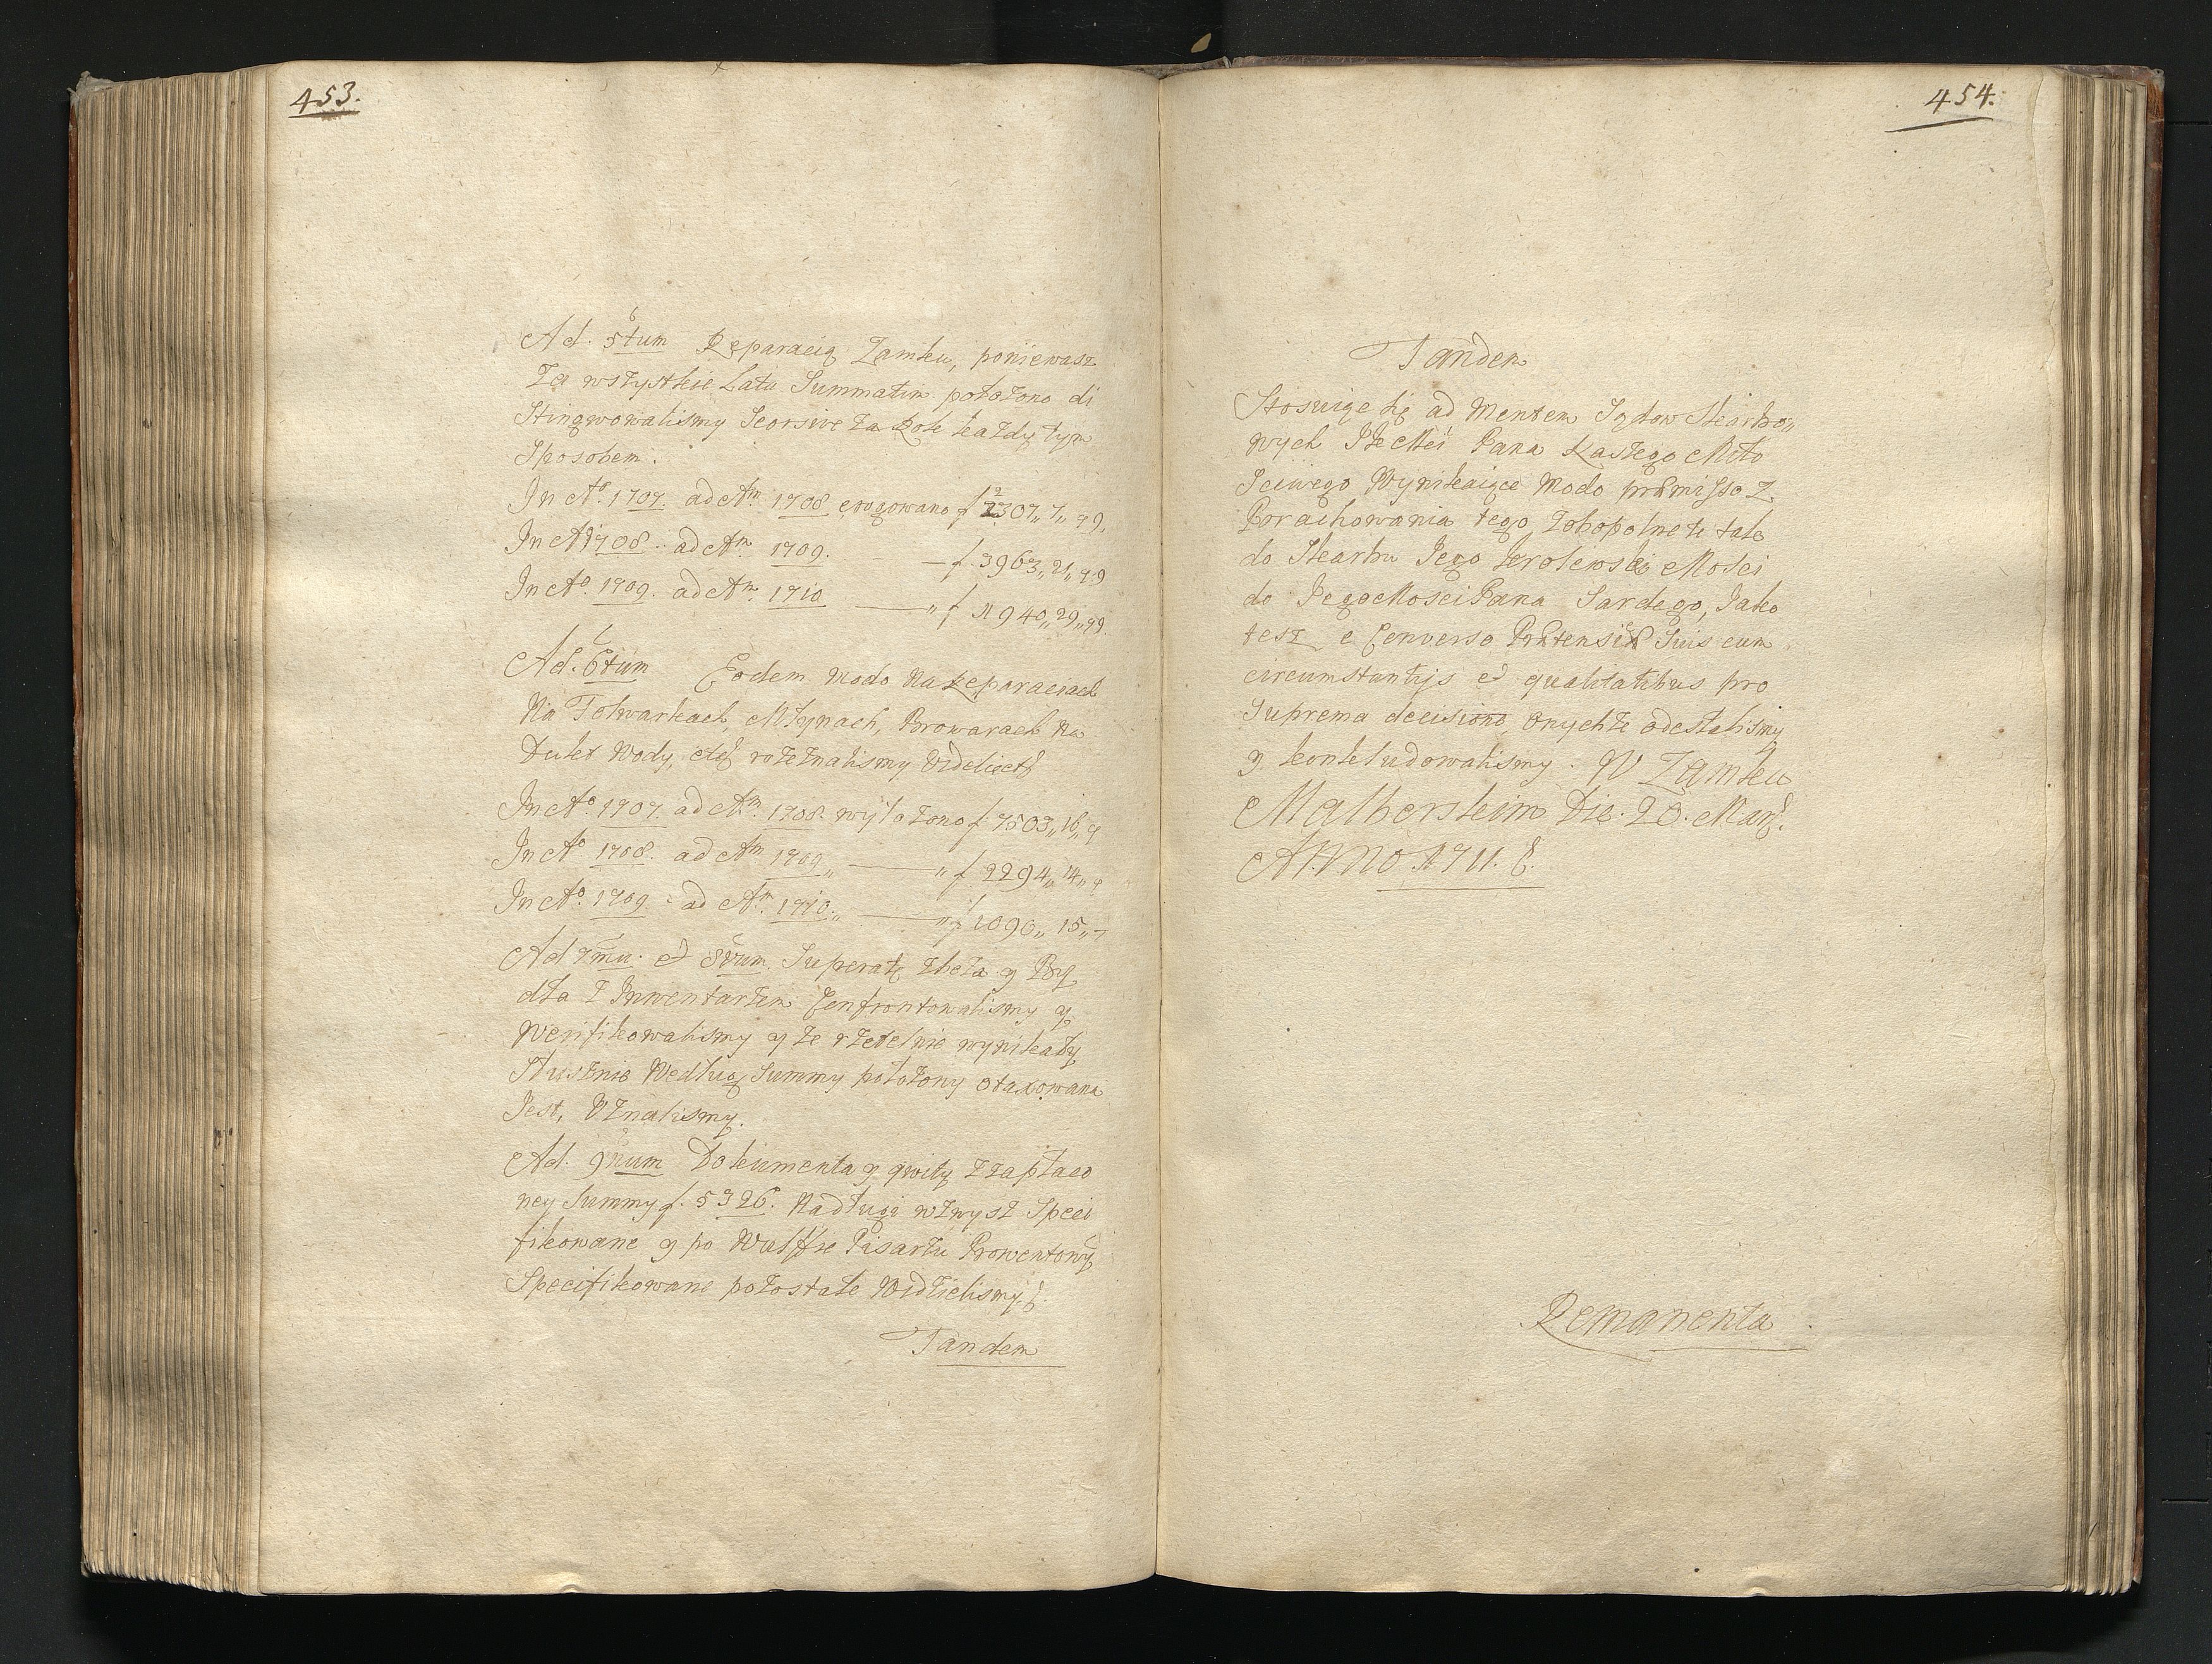 453.
Ad. 5tum Reparacią Zamku, poniewasz
Za wszystkie Lata Summatim położono di
Stingwowalismy Seorsive za Rok każdy tym
Sposobem.
In Aº. 1707. ad Am. 1708 erogowano f 2307„ 7„ 99.
In Aº 1708. ad Am. 1709. — f. 3963„ 21„ 99
In Aº. 1709. ad Am. 1710 — „ f 11940„ 29„ 99.
Ad. 6tum Eodem modo Na Reparaciach
Na Folwarkach, Młynach, Browarach Na
Dukt Wody, etc rożeznalismy Videlicet
In Aº 1707. ad Am. 1708. wyłożono f 7503„ 16„ 9
In Aº 1708. ad Am 1709„ — „ f 2294„ 14„ 9
In Aº. 1709. ad Am. 1710„ — „ f 1090„ 15„ 7
Ad 7mu. et 8vum. Superatę zboża y By
dła z Inwentarzem Confrontowalismy y
Werifikowalismy y że rzetelnie wynikały
Słusznie Według Summy położony otaxowana
Jest, Uznalismy.
Ad. 9num Dokumenta y qwity z zapłaco
ney Summy f. 5326. Na długi wzwysz Speci
fikowane y po Wulffie Pisarzu Prowentowy
Specifikowane pozostałe Widzielismy.
Tandem
454.
Tandem
Stosuiąc się ad Mentem Sądow Skarbo„
wych Jk Mći Pana Naszego Miło
Sciwego Wynikaiące Modo præmisso Z
Porachowania tego Zobopolnete tak
do Skarbu Jego Krolewski Mości
do Jego Mości Pana Sardego, Jako
tesz e Converso Prætensie Suis cum
circumstantijs et qualitatibus pro
Suprema decisione onychże odesłalismy
y konkludowalismy. W Zamku
Malborskim Die. 20. Mar.
ANNO. 1711.
Remanenta